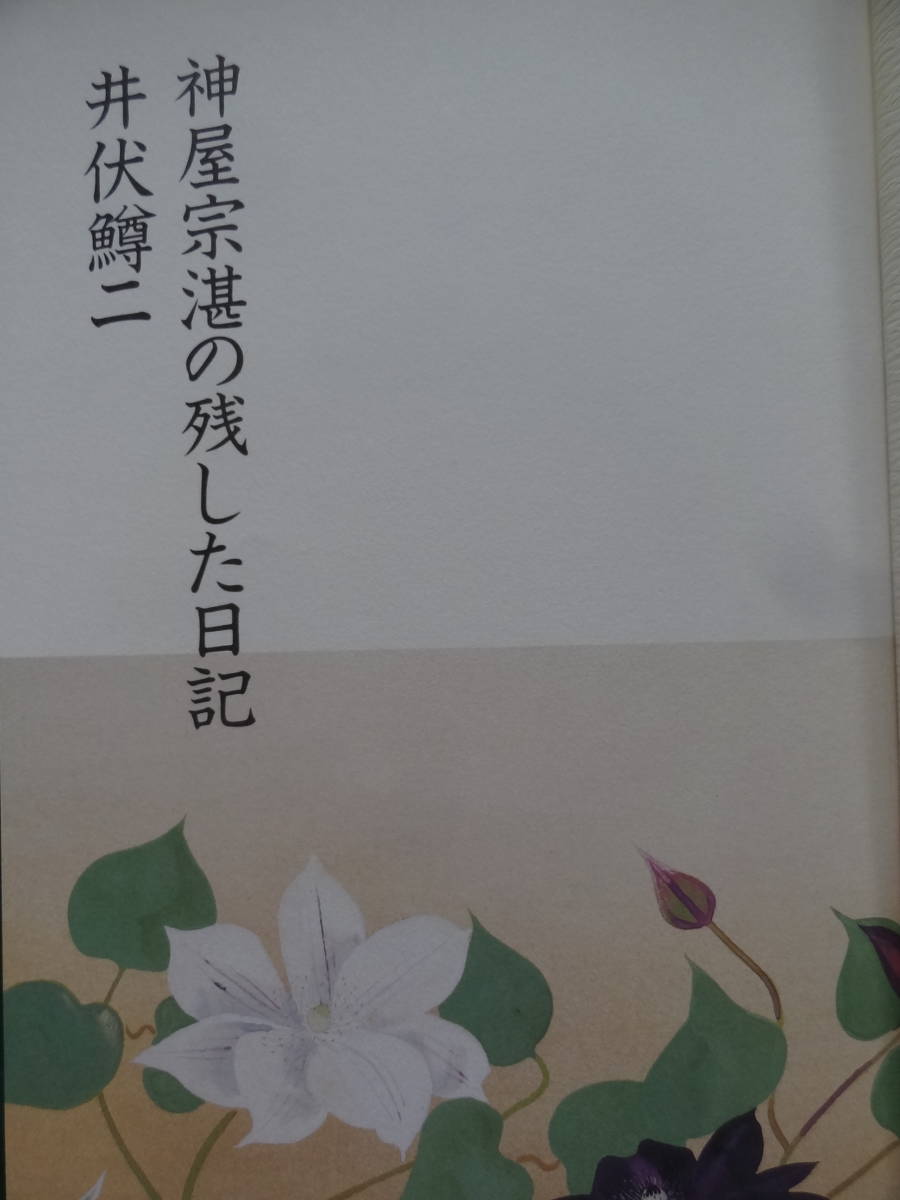 神屋宗湛の残した日記
井伏鱒二